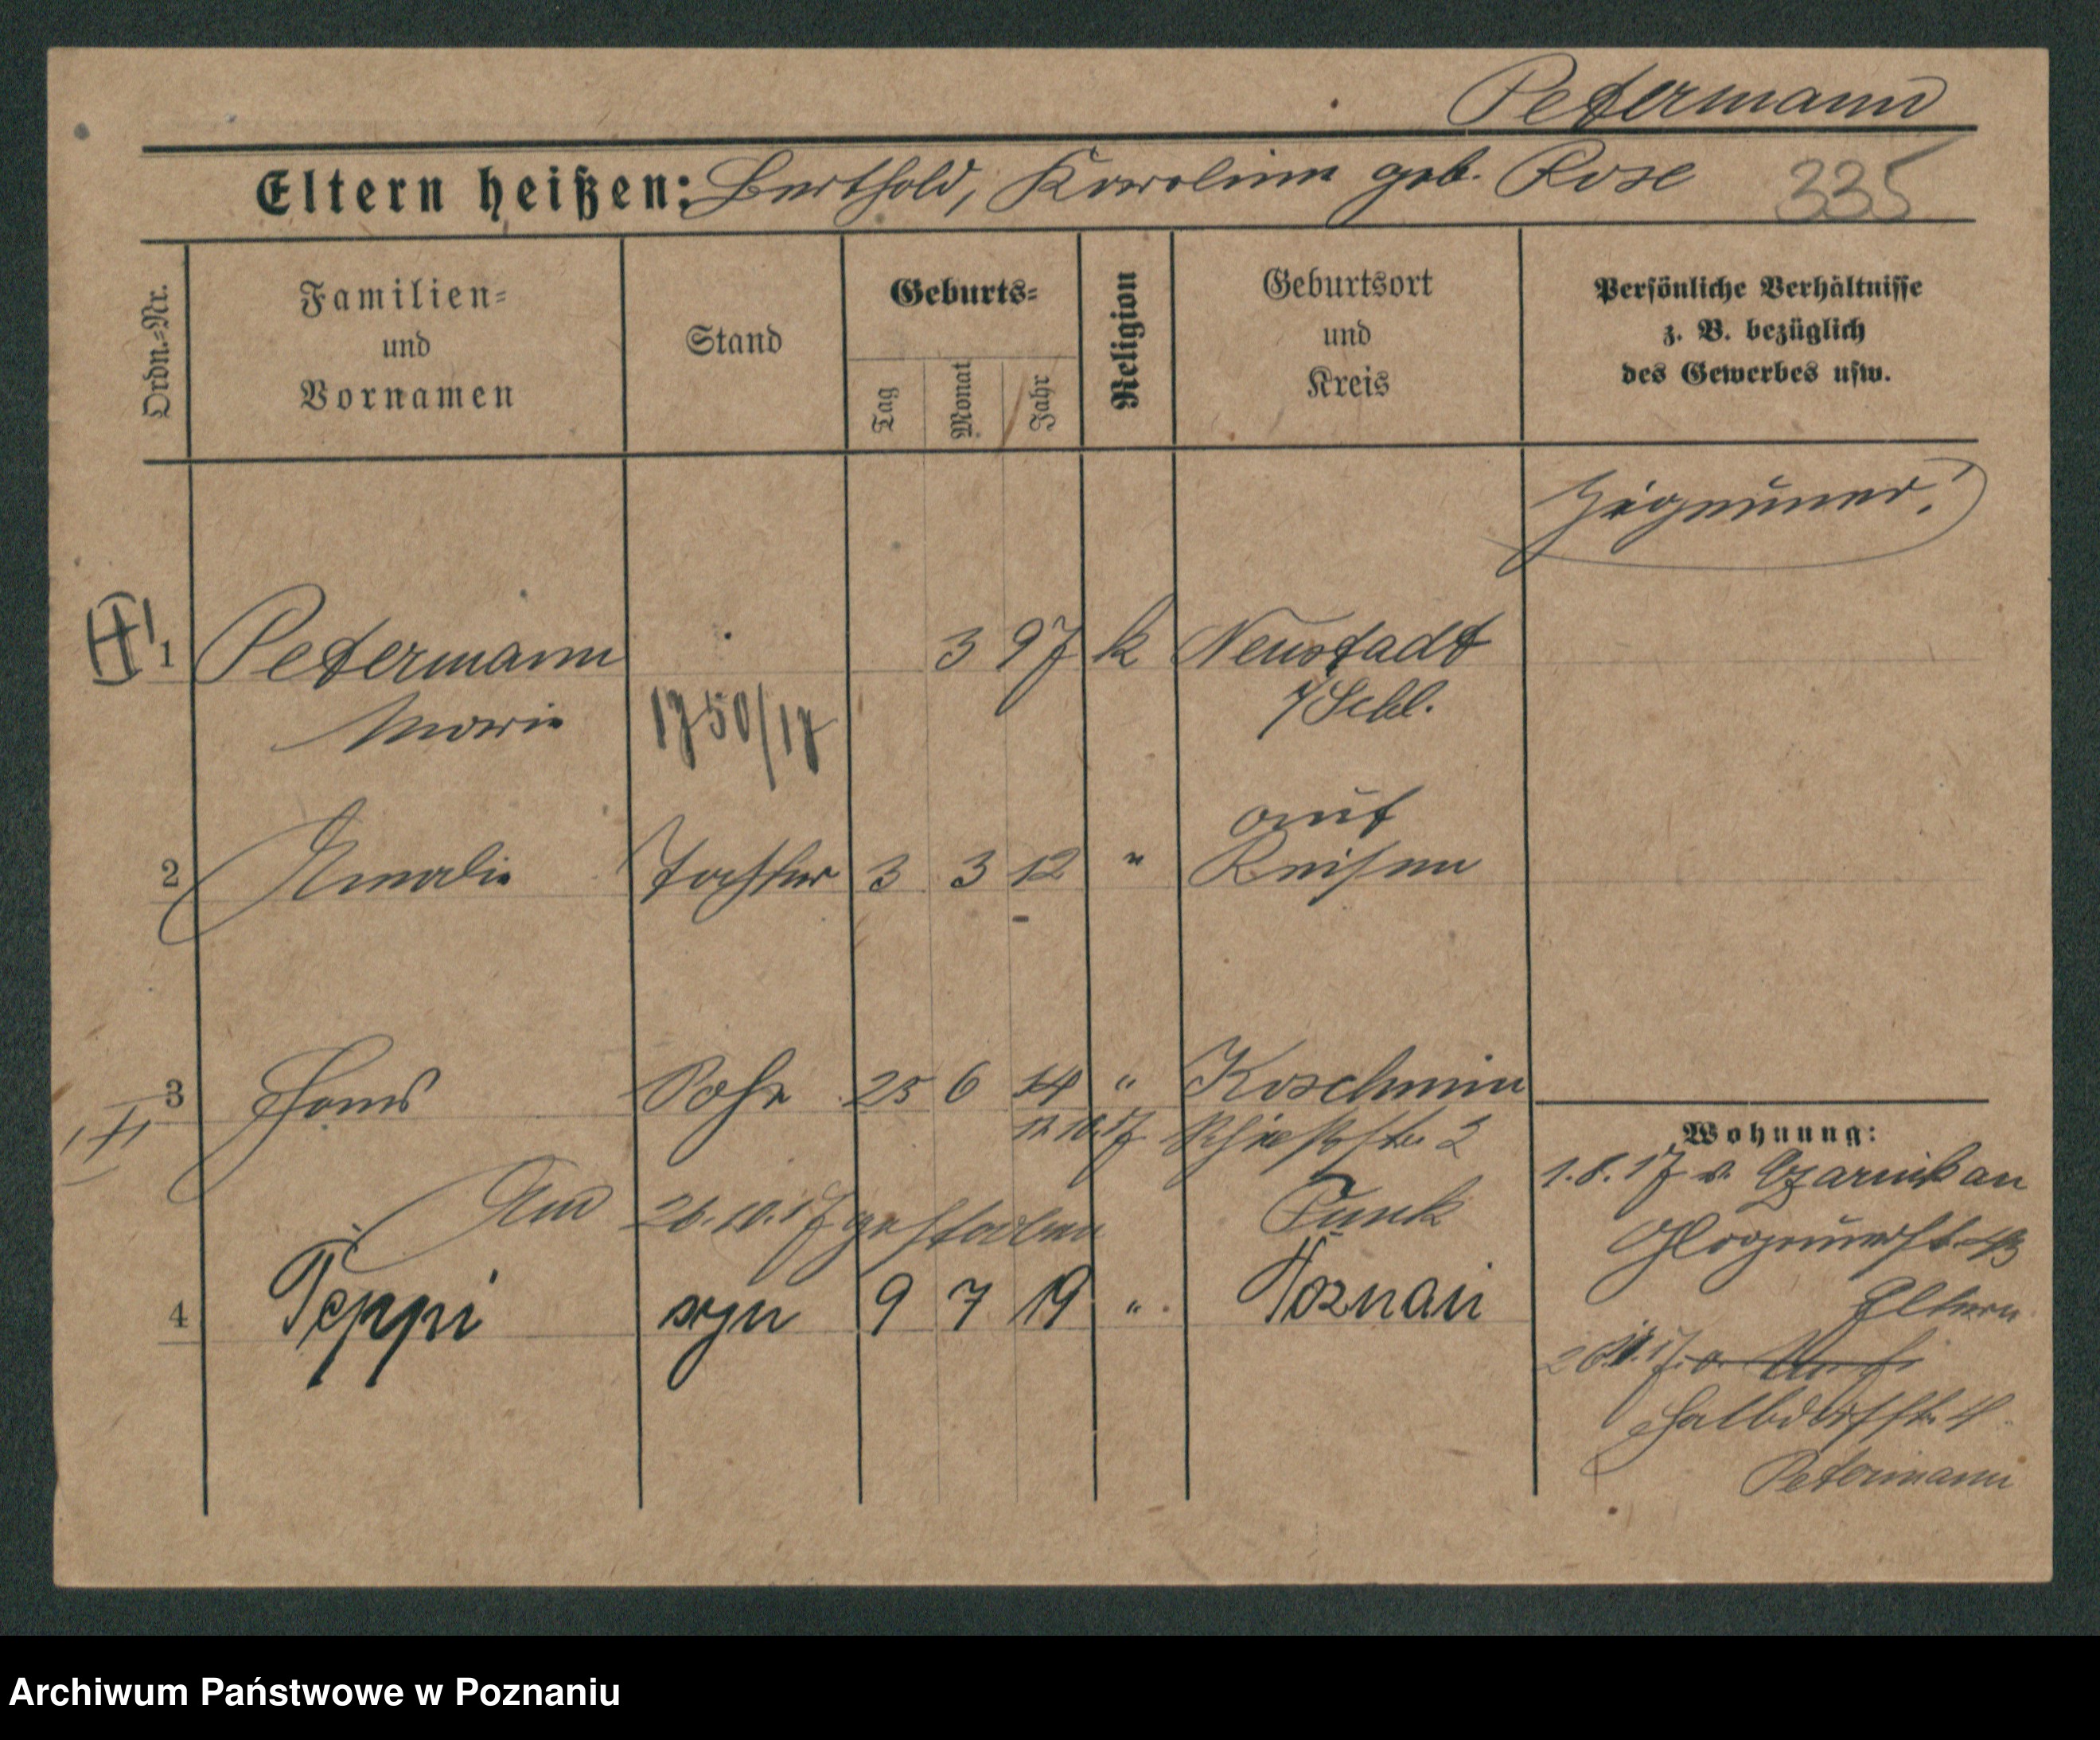 Petermann
Eltern heißen: Berthold, Karolina geb. Rose 335
Ordn.-Nr.
Familien-
und
Vornamen
Stand
Geburts-
Tag
Monat
Jahr
Religion
Geburtsort
und
Kreis
Persönliche Verhältnisse
z. B. bezüglich
des Gewerbes usw.
Zigeuner!
1 Petermann 3 97 k Neustadt
Marie 1750/17 /Schl.
auf
2 Amalie Tochter 3 3 12 " Reisen
3 Hans Sohn 25 6 14 " Koschmin
17.10.17 Schießstr. 2
Am 26.10.17 gestorben Funk
4 Peppi syn 9 7 19 " Poznań
Wohnung:
1.8.17 v. Czarnikau
Glogauerstr.
Eltern
17. v.
Halbdorfstr. 4
Petermann
Archiwum Państwowe w Poznaniu